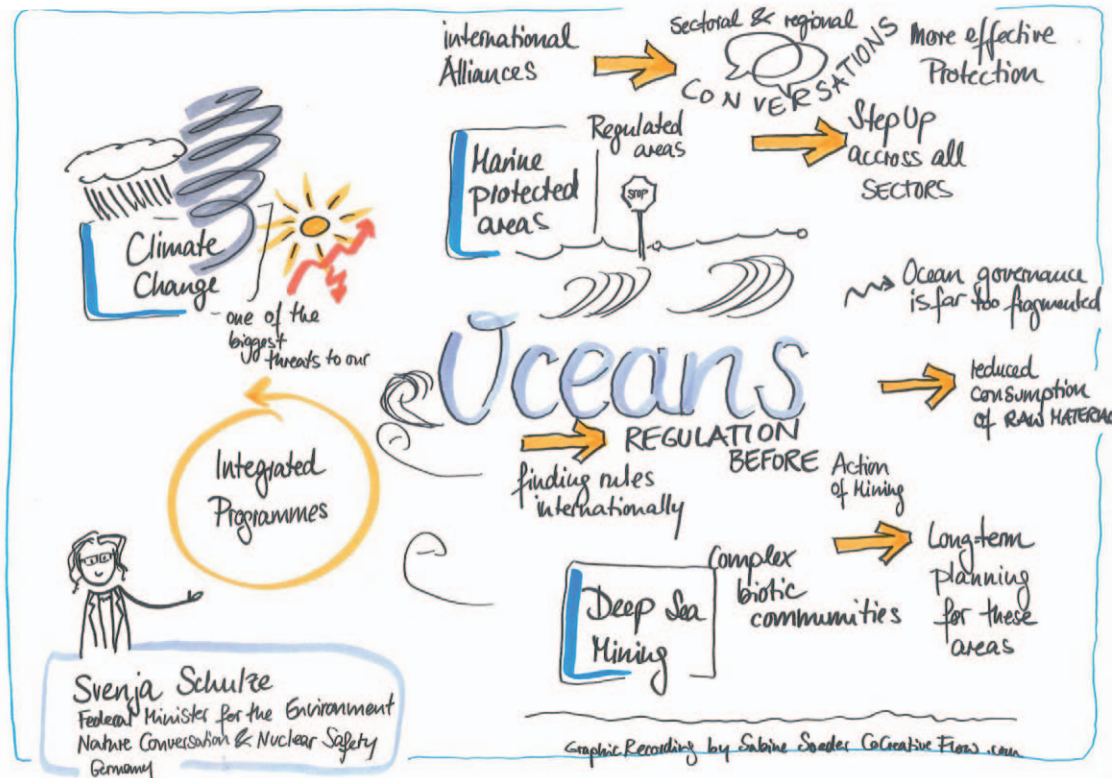 international
Alliances
sectoral & regional
CONVERSATIONS
More effective
Protection
Marine
protected
areas
Regulated
areas
STOP
Step Up
accross all
SECTORS
Climate
Change
- one of the
biggest
threats to our
Oceans
Ocean governance
is far too fragmented
reduced
consumption
of RAW MATERIA
REGULATION
BEFORE
Action
of Mining
finding rules
internationally
Integrated
Programmes
Deep Sea
Mining
Complex
biotic
communities
Long-term
planning
for these
areas
Svenja Schulze
Federal Minister for the Environment
Nature Conversation & Nuclear Safety
Germany
Graphic Recording by Sabine Soeder CoCreativeFlow.com